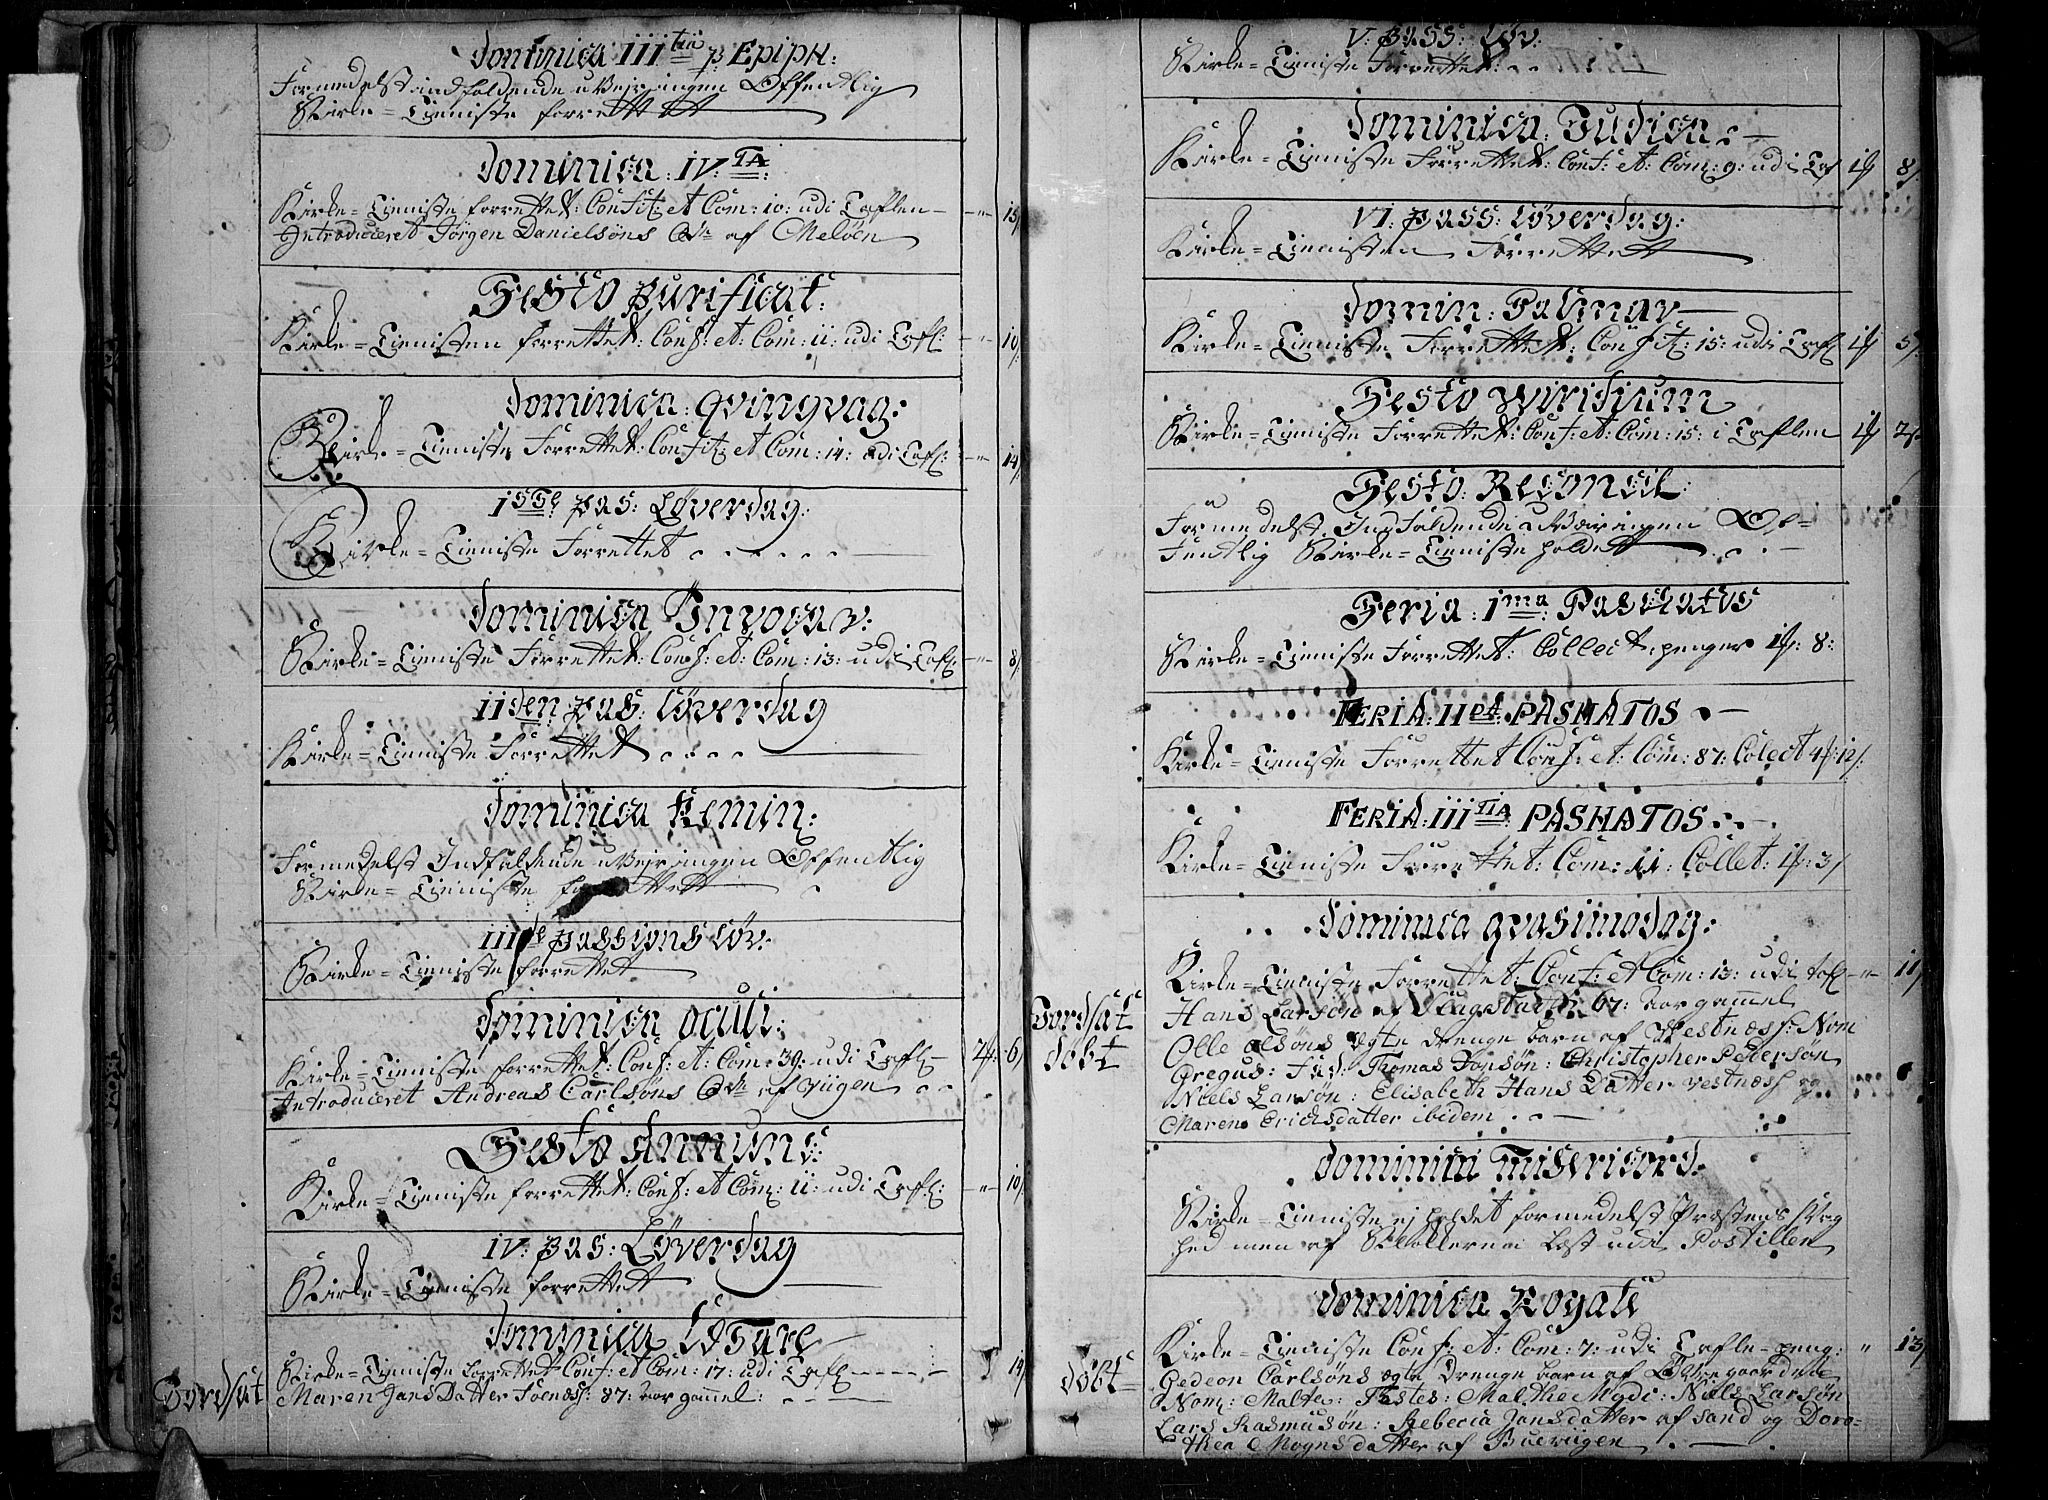 Dominica IIItiæ p: EPIPH:
Formedelst indfaldende uVejringen Offentlig
Kirke=Tienniste forrettett
Dominica: IV:TA:
Kirke=Tienniste forrettet: Confit: et Com: 10: udi Taflen - - " - 15/
Introduceret Jörgen Danielsöns af Melöen
Festo Purificat:
Kirke=Tiennisten forrettet: Conf: et: Com: 11: udi Tafl: - " - 10/
Dominica: Qvingvag:
Kirke=Tienniste Forrettet: Confit: et Com: 14: udi Tafl: - " - 14/
1ste Pas: Löverdag:
Kirke=Tienniste Forrettet
Dominica Invocav:
Kirke=Tienniste Forrettet: Conf: et: Com: 13: udi Tafl: - " - 8/
IIden Pas: Löverdag
Kirke=Tienniste Forrettet
Dominica Remin:
Formedelst Indfaldende uVejringen Offentlig
Kirke=Tienniste forrettett
IIIde Passions Löv:
Kirke=Tienniste forrettet
Dominica Oculi:
Kirke=Tienniste forrettet: Conf: et: Com: 39: udi Tafl: 2 6/
Introduceret Andreas Carlsöns af
Festo Annunc:
Kirke=Tienniste forrettet: Conf: et Com: 11: udi Tafl: - " - 10/
IV: Pas: Löverdag
Kirke=Tienniste forrettett
Dominica Lætare
Kirke=Tienniste forrettet Conf: et Com: 17: udi Tafl: 14/
Jordsat Maren Jans Datter 87: aar gammel:
V: Pass: Löv:
Kirke=Tienniste Forrettet:
Dominica: Judica:
Kirke=Tienniste Forrettet: Conf: et: Com: 9: udi Taf 1 8/
VI: Pass: Löverdag:
Kirke=Tiennisten Forrettett
Domin: Palmar
Kirke=Tienniste Forrettet: Confit: 15: udi Tafl 1 5/
Festo Wiridium
Kirke=Tienniste Forrettet: Conf: et: Com: 15: i Taflen 1 2/
Festo: Reconcil:
Formedelst Indfaldende uVæringen Of=
fentlig Kirke=Tienniste holdett
Feria: 1ma: Paschatos
Kirke=Tienniste Forrettet: Collect penger 1: 8:
FERIA: IIda: PASHATOS
Kirke=Tienniste Forrettet Conf: et: Com: 87: Colect 4: 12/:
FERIA: IIITIA PASHATOS
Kirke=Tienniste Forrettet: Com: 11: Collet: 1: 3/
Dominica Qvasimodog:
Kirke=Tienniste Forrettet: Conf: et Com: 13: udi tafl - " - 11/
Jordsat Hans Larsön af Flagstadöe 67: aar gammel
döbt Olle Olsöns egte drenge barn af Vestnæss: Nom
Gregus: Fad: Thomas Jonsön: Christopher Petersön
Niels Larsön: Elisabeth Hans Datter vestnæss og
Maren Erichsdatter ibidem
Dominica Misericord:
Kirke=Tienniste ej holdet formedelst Præstens Svag
hed men af Klokkeren læst udi Postillen
Dominica Rogate
Kirke=Tienniste Conf: et: Com: 7: udi Tafle=peng: " 13/
döbt Gedeon Carlsöns egte Drenge barn af
Nom: Malte: Testes: Malthe Mydi: Niels Larsön
Lars Rasmusön: Rebecca Jansdatter af sand og Doro=
thea Mognsdatter af